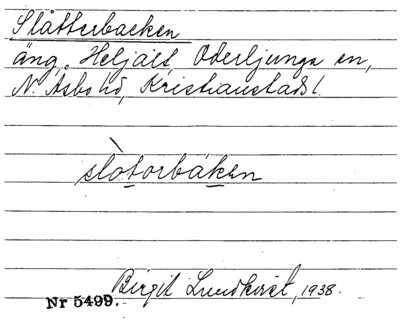 Slåtterbacken
äng, Heljalt, Oderljunga sn,
N. Åsbo hd, Kristianstads l.
slòtorbáken
Birgit Lundkvist, 1938.
Nr 5499.